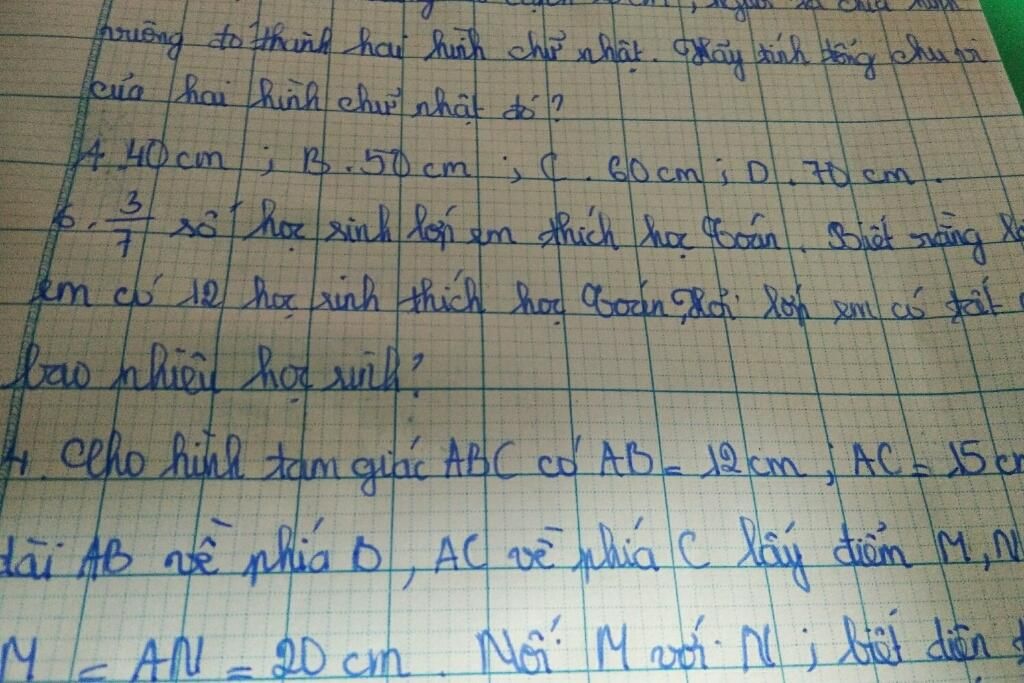 vuông đó thành hai hình chữ nhật. Hãy tính tổng chu vi
của hai hình chữ nhật đó?
A. 40cm ; B. 50cm ; C. 60cm ; D. 70cm.
6. 3/7 số học sinh lớp em thích học Toán. Biết rằng
em có 12 học sinh thích học Toán, Hỏi lớp em có tất
bao nhiêu học sinh?
Cho hình tam giác ABC có AB = 12cm ; AC = 15cm
dài AB về phía B, AC về phía C lấy điểm M, N
M = AN = 20cm. Nối M với N ; biết diện